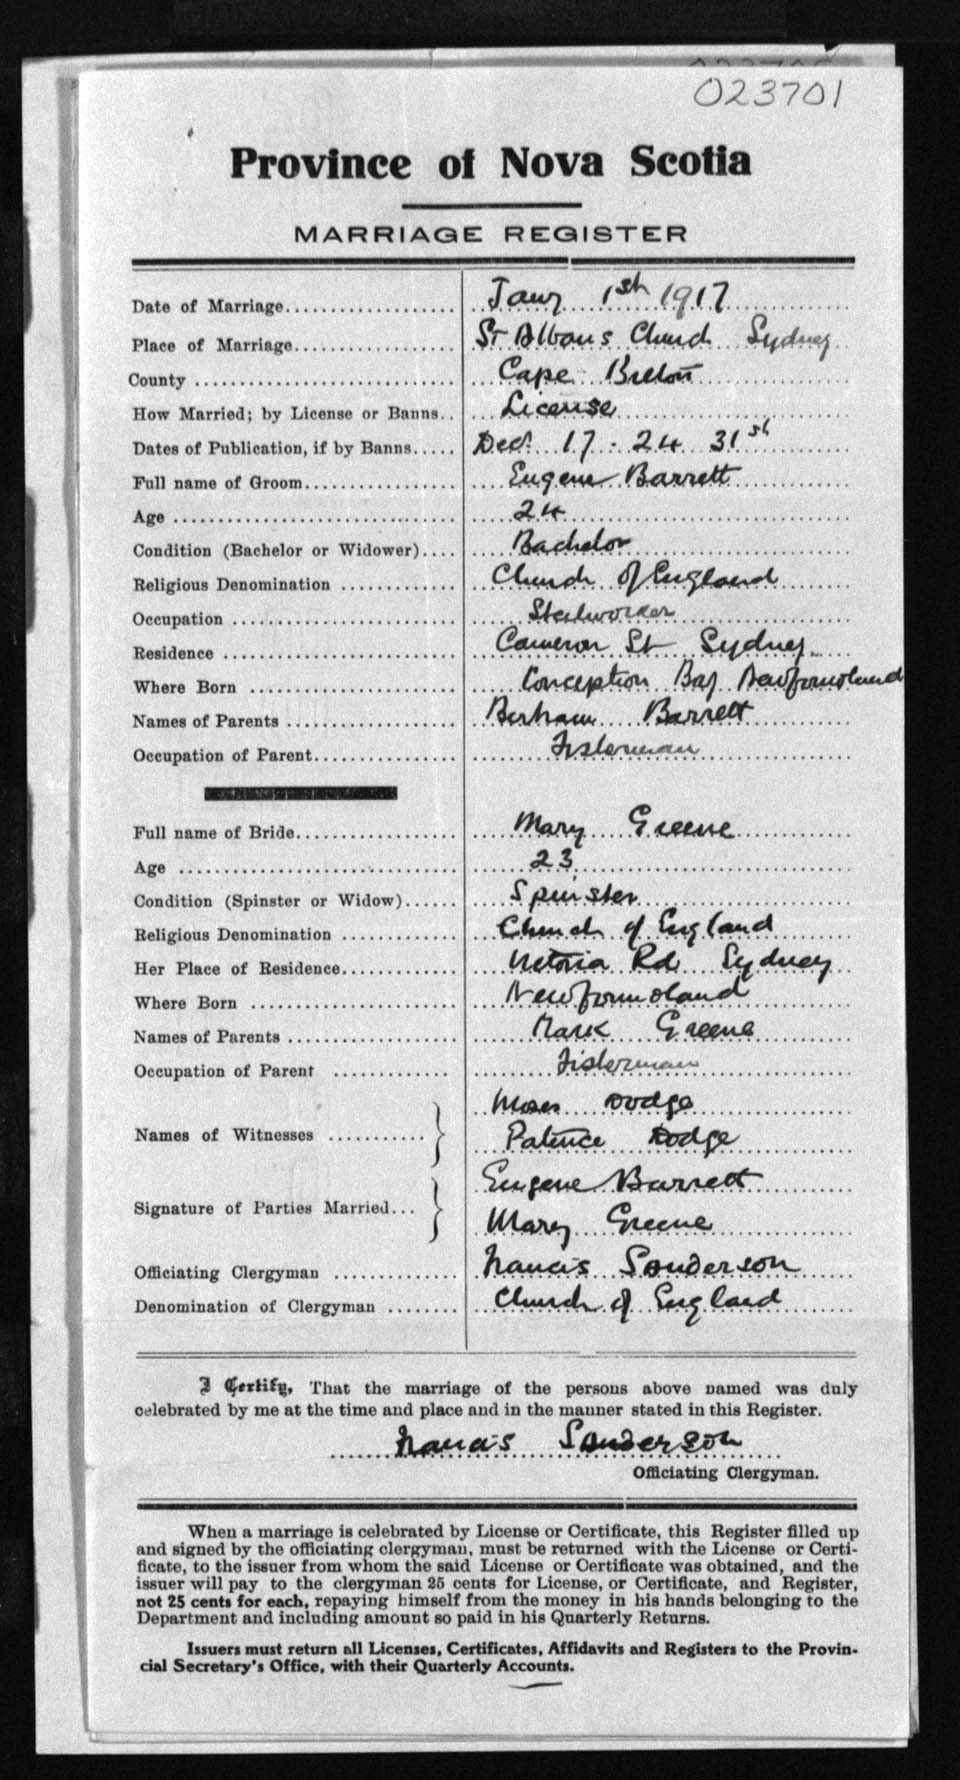 023701
Province of Nova Scotia
MARRIAGE REGISTER
Date of Marriage................... Jany 1st 1917
Place of Marriage................... St Albans Church Sydney
County ............................... Cape Breton
How Married; by License or Banns.. License
Dates of Publication, if by Banns..... Dec. 17 - 24 31st
Full name of Groom.................. Eugene Barrett
Age .................................. 24
Condition (Bachelor or Widower).... Bachelor
Religious Denomination ............. Church of England
Occupation .......................... Steelworker
Residence ........................... Cameron St Sydney
Where Born ........................ Conception Bay Newfoundland
Names of Parents .................... Bertram Barrett
Occupation of Parent................. Fisherman
Full name of Bride................... Mary Greene
Age ................................. 23
Condition (Spinster or Widow)...... Spinster
Religious Denomination ............. Church of England
Her Place of Residence............. Victoria Rd Sydney
Where Born ........................ Newfoundland
Names of Parents .................... Mark Greene
Occupation of Parent ............. Fisherman
Moses Dodge
Names of Witnesses ...........
Patience Dodge
Eugene Barrett
Signature of Parties Married...
Mary Greene
Officiating Clergyman ............. Francis Sanderson
Denomination of Clergyman ........ Church of England
I Certify, That the marriage of the persons above named was duly
celebrated by me at the time and place and in the manner stated in this Register.
Francis Sanderson
Officiating Clergyman.
When a marriage is celebrated by License or Certificate, this Register filled up
and signed by the officiating clergyman, must be returned with the License or Certi-
ficate, to the issuer from whom the said License or Certificate was obtained, and the
issuer will pay to the clergyman 25 cents for License, or Certificate, and Register,
not 25 cents for each, repaying himself from the money in his hands belonging to the
Department and including amount so paid in his Quarterly Returns.
Issuers must return all Licenses, Certificates, Affidavits and Registers to the Provin-
cial Secretary's Office, with their Quarterly Accounts.